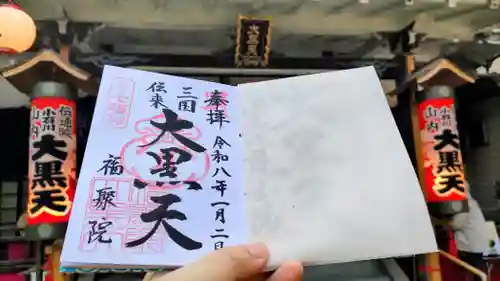 奉拝
令和八年一月二日
三国
伝来
大黒天
福聚院
大黒天
伝通院
小石川
山内
大黒天
小石川
山内
大黒天